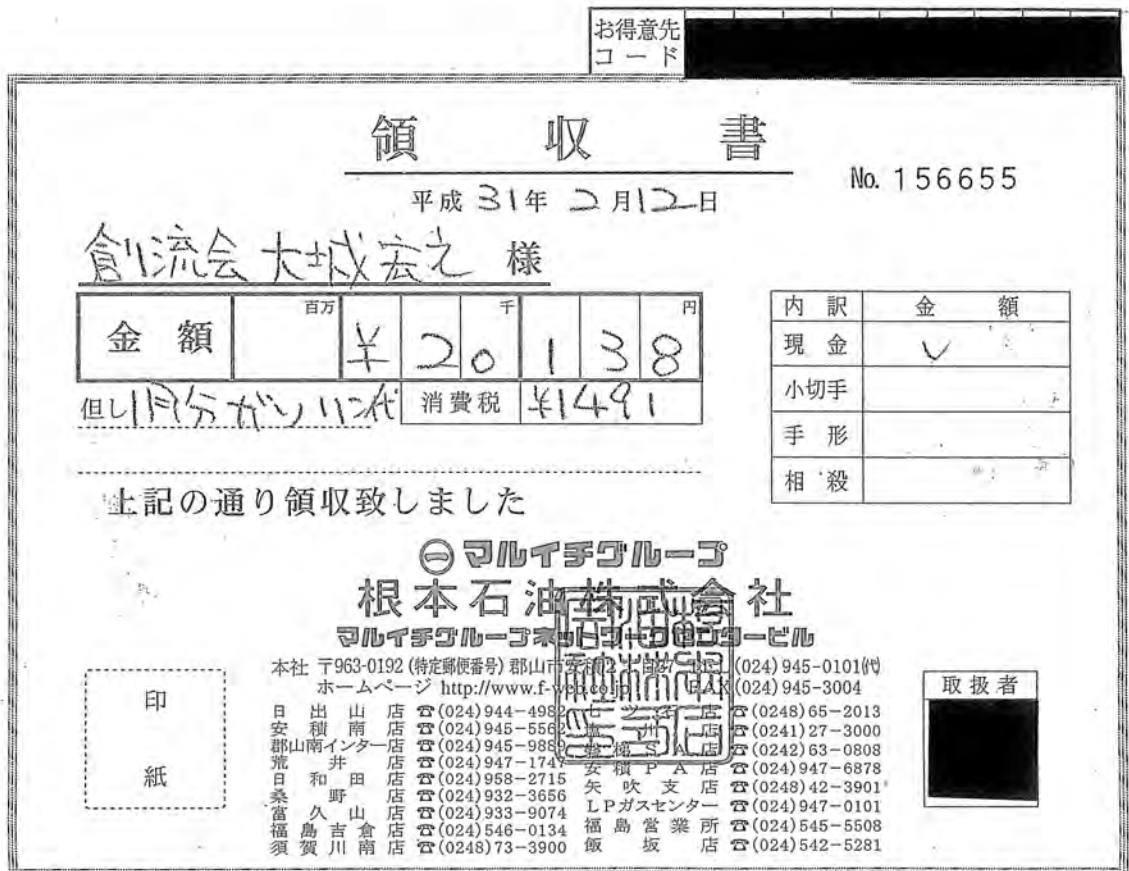 お得意先
コード
領収書
No. 156655
平成 31年 2月12日
創流会 大城宏之 様
金額 百万 千 円
¥20138
但し 1月分ガソリン代 消費税 ¥1491
内訳 金額
現金 ✓
小切手
手形
相殺
上記の通り領収致しました
マルイチグループ
根本石油株式会社
マルイチグループネットワークセンタービル
本社 〒963-0192 (特定郵便番号) 郡山市安積2丁目 (024) 945-0101㈹
ホームページ http://www.f-web.co.jp FAX (024) 945-3004
日出山店 ☎(024)944-4982
安積南店 ☎(024)945-5562
郡山南インター店 ☎(024)945-9889
荒井店 ☎(024)947-1747
日和田店 ☎(024)958-2715
桑野店 ☎(024)932-3656
富久山店 ☎(024)933-9074
福島吉倉店 ☎(024)546-0134
須賀川南店 ☎(0248)73-3900
店 ☎(0248)65-2013
店 ☎(0241)27-3000
磐梯SA店 ☎(0242)63-0808
安積PA店 ☎(024)947-6878
矢吹支店 ☎(0248)42-3901
LPガスセンター ☎(024)947-0101
福島営業所 ☎(024)545-5508
飯坂店 ☎(024)542-5281
印
紙
取扱者